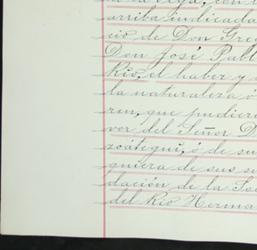 arriba indicada
cio de Don Greg
Don José Pabl
Rio, el haber y
la naturaleza ó
ren, que pudiera
vor del Señor D
zoátegui, ó de su
quiera de sus su
dación de la Soc
del Rio Herma